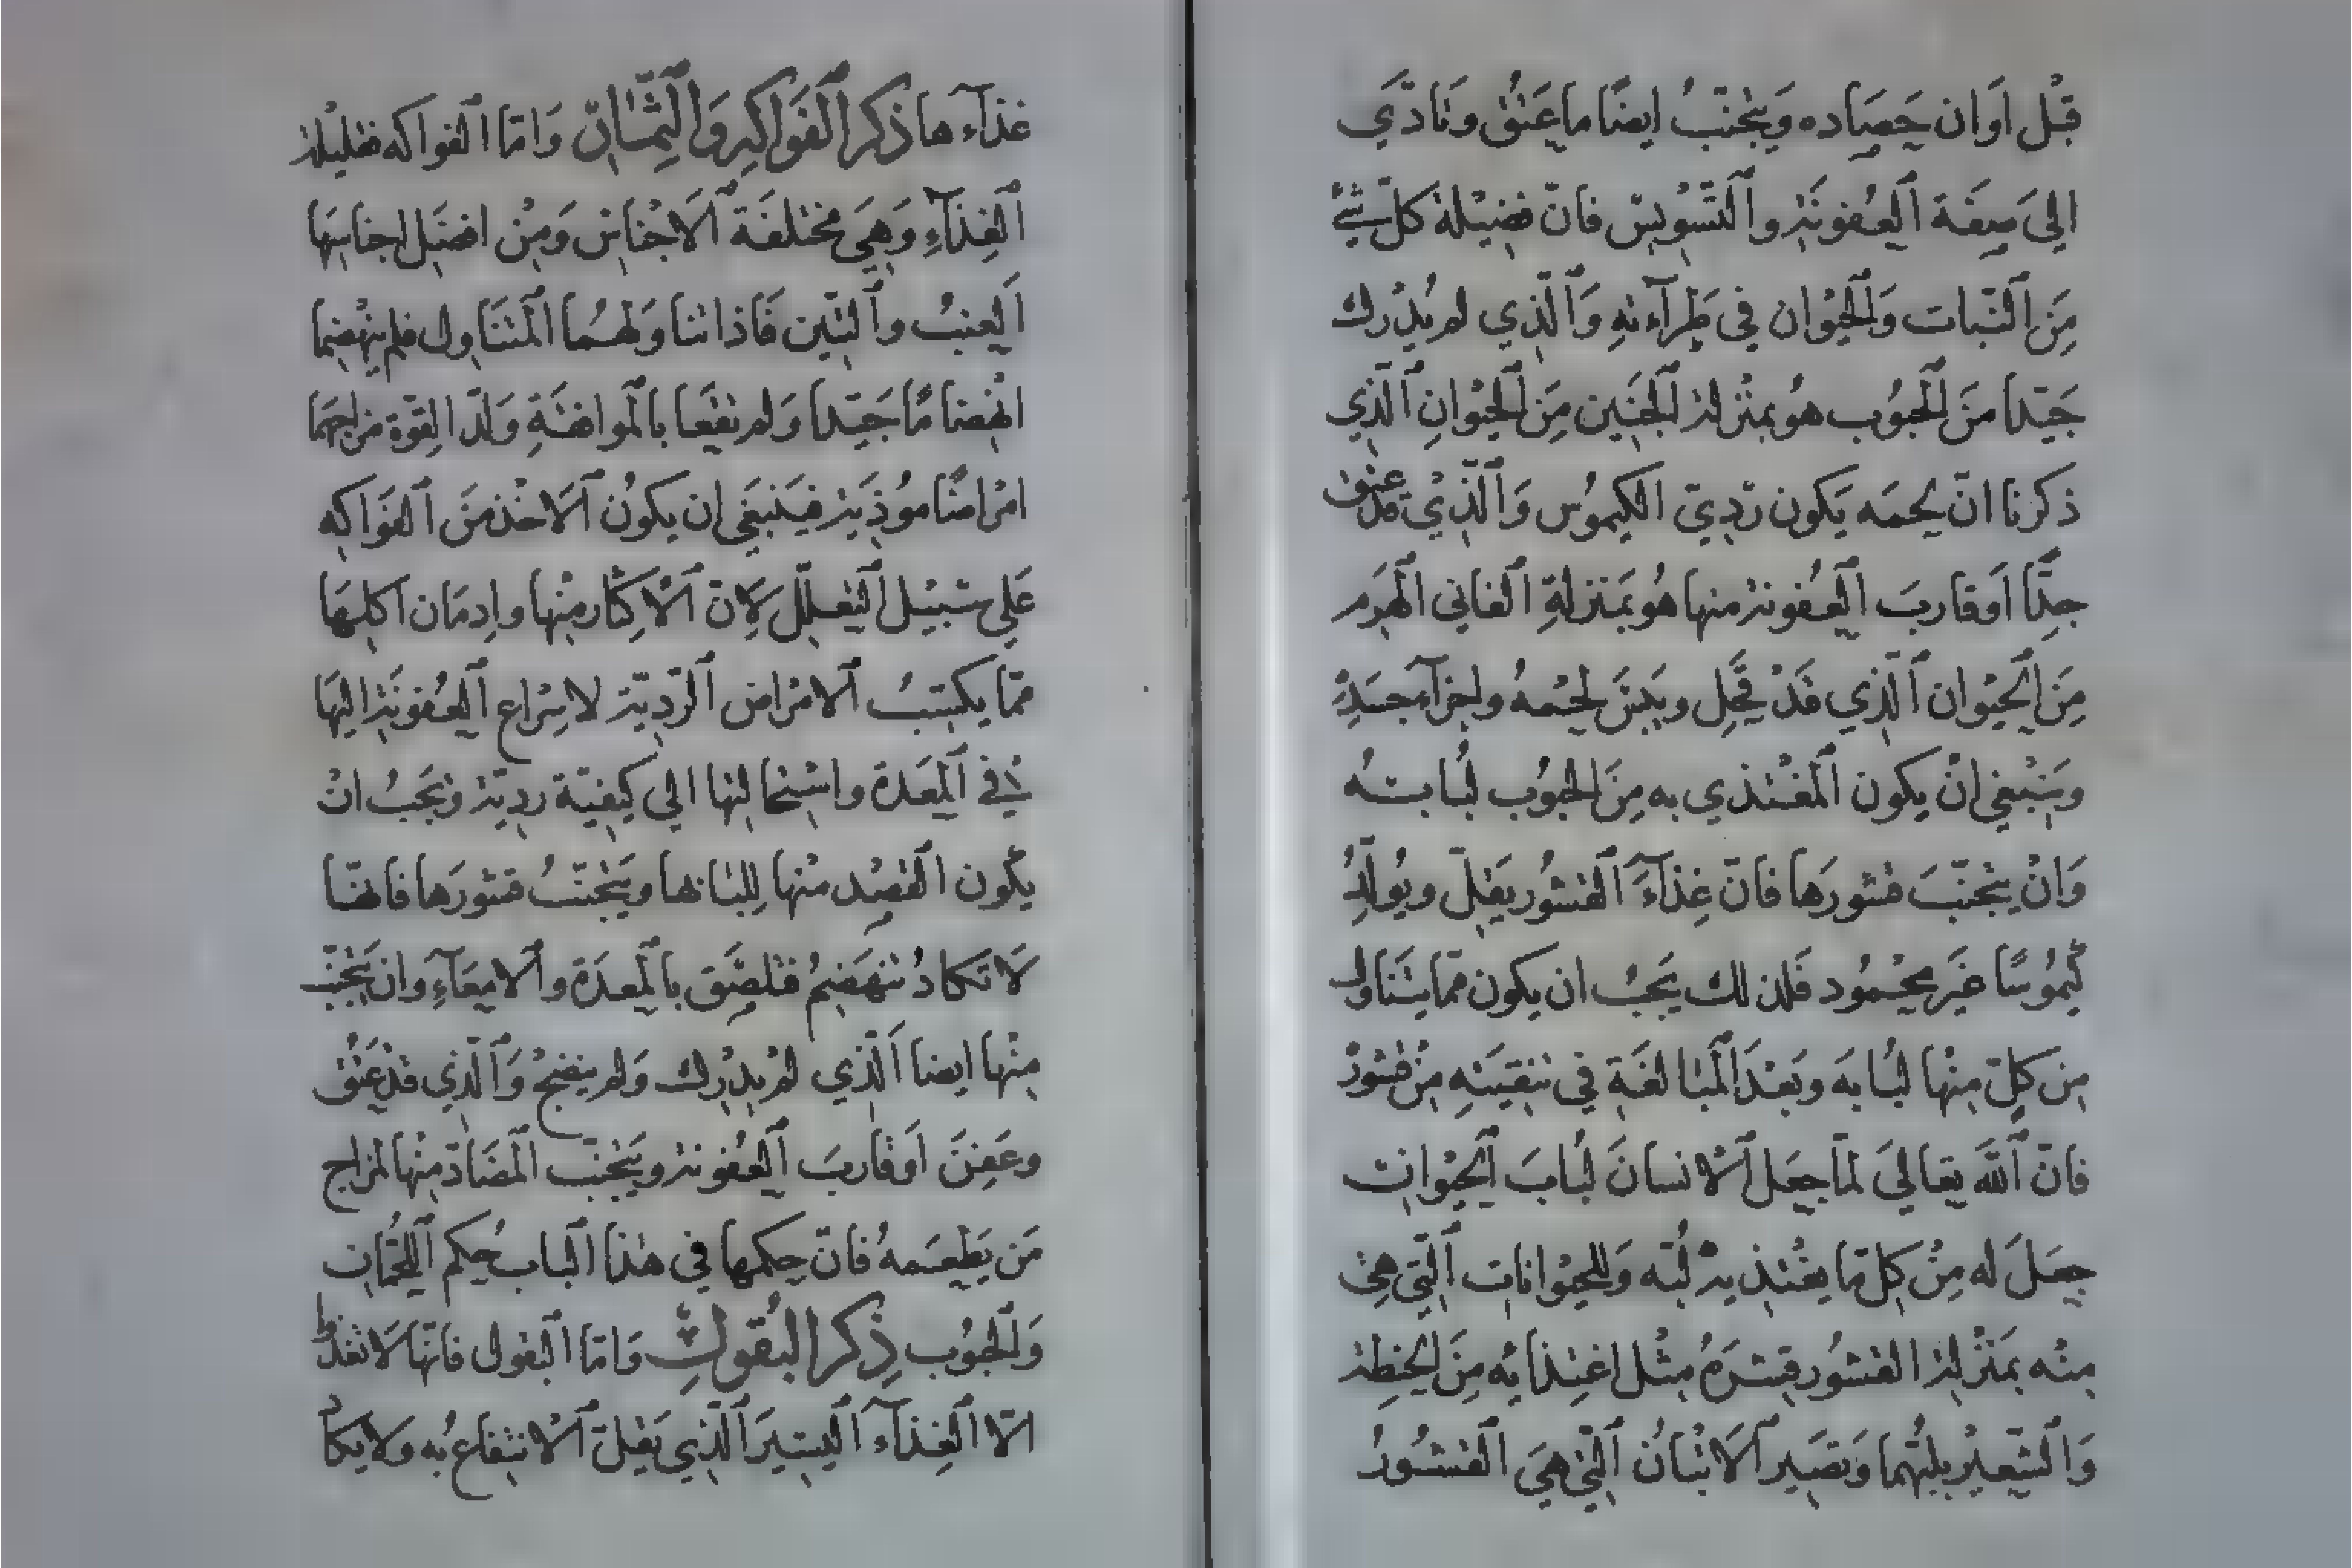 قبل اوان حصاده ويجتنب ايضا ما عتق وتادّي
الي صفة العفونة والتسويس فان فضيلة كل شيء
من النبات والحيوان في طرآءته والذي لم يدرك
جيدا من الحبوب هو بمنزلة الجنين من الحيوان الذي
ذكرنا انّ لحمه يكون رديّ الكيموس والذي قد عتق
جدّا او قارب العفونة منها هو بمنزلة الفاني الهرم
من الحيوان الذي قد قحل ويبس لحمه واجزآء جسده
وينبغي ان يكون المغتذي به من الحبوب لبابته
وان يجتنب قشورها فانّ غذآء القشور يقلّ ويولّد
كيموسًا غير محمود فلذلك يجب ان يكون ممّا يتناول
من كلّ منها لبابه وبعد المبالغة في تنقيته من قشوره
فانّ الله تعالي لمّا جعل الانسان لباب الحيوان
جعل له من كل ما يغتذي به لبّه وللحيوانات التي هي
منه بمنزلة القشور قشره مثل اغتذايه من الحنطة
والشعير بلبّهما وتصير الاتبان التي هي القشور
غذآءها ذكر الفواكه والثمار وامّا الفواكه فقليلة
الغذآء وهي مختلفة الاجناس ومن افضل اجناسها
العنب والتين فاذا تناولهما المتناول فلم ينهضما
انهضامًا جيّدا ولم نفعا بالموافقة ولّدا لقوة مزاجهما
امراضًا موذية فينبغي ان يكون الاخذ من الفواكه
علي سبيل التعلّل لانّ الاكثار منها وادمان اكلها
ممّا يكتسب الامراض الرديّة لاسراع العفونة اليها
في المعدة واستحالتها الي كيفيّة رديّة ويجب ان
يكون القصد منها للبابها ويجتنب قشورها فانها
لا تكاد تنهضم فتلصق بالمعدة والامعآء وان يجتنب
منها ايضا الذي لم يدرك ولم ينضج والذي قد عتق
وعفن او قارب العفونة ويجتنب المضادّ منها لمزاج
من يطعمه فانّ حكمها في هذا الباب حكم اللحمان
والحبوب ذكر البقول وامّا البقول فانّها لا تغذو
الّا الغذآء اليسير الذي يقلّ الانتفاع به ولا يكاد